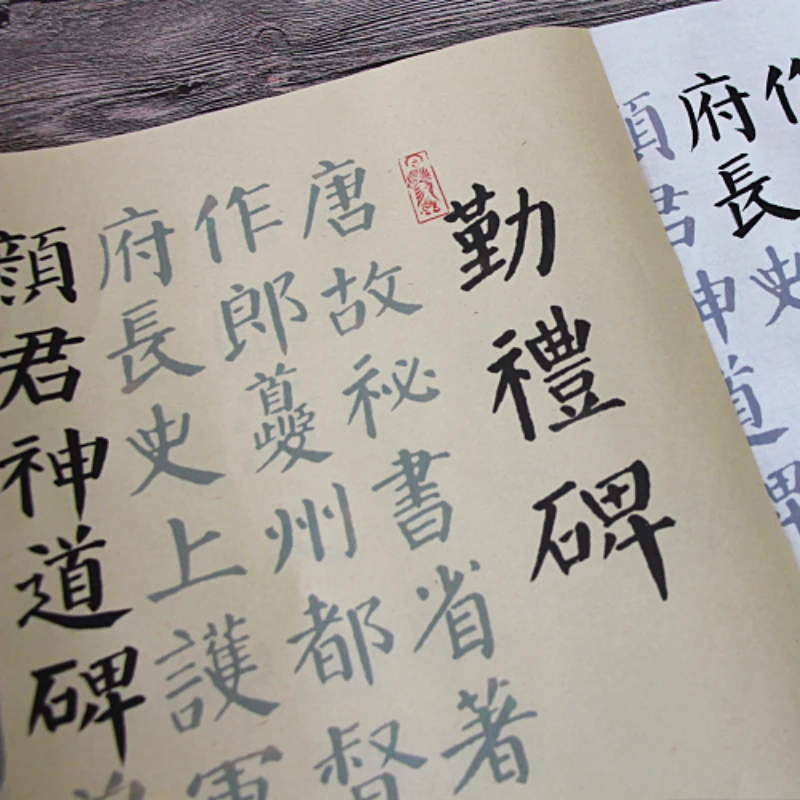 作
府長史
顏君神道碑
勤禮碑
唐故祕書省著
作郎夔州都督
府長史上護軍
顏君神道碑